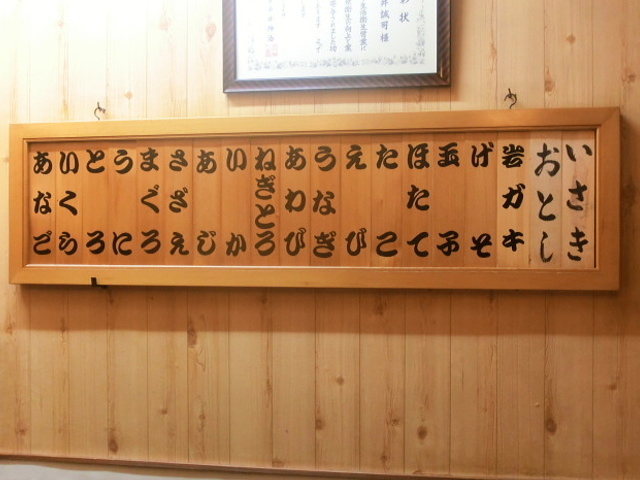 いさき
おとし
岩ガキ
げそ
玉子
ほたて
たこ
えび
うなぎ
あわび
ねぎとろ
いか
あじ
さざえ
まぐろ
うに
とろ
いくら
あなご